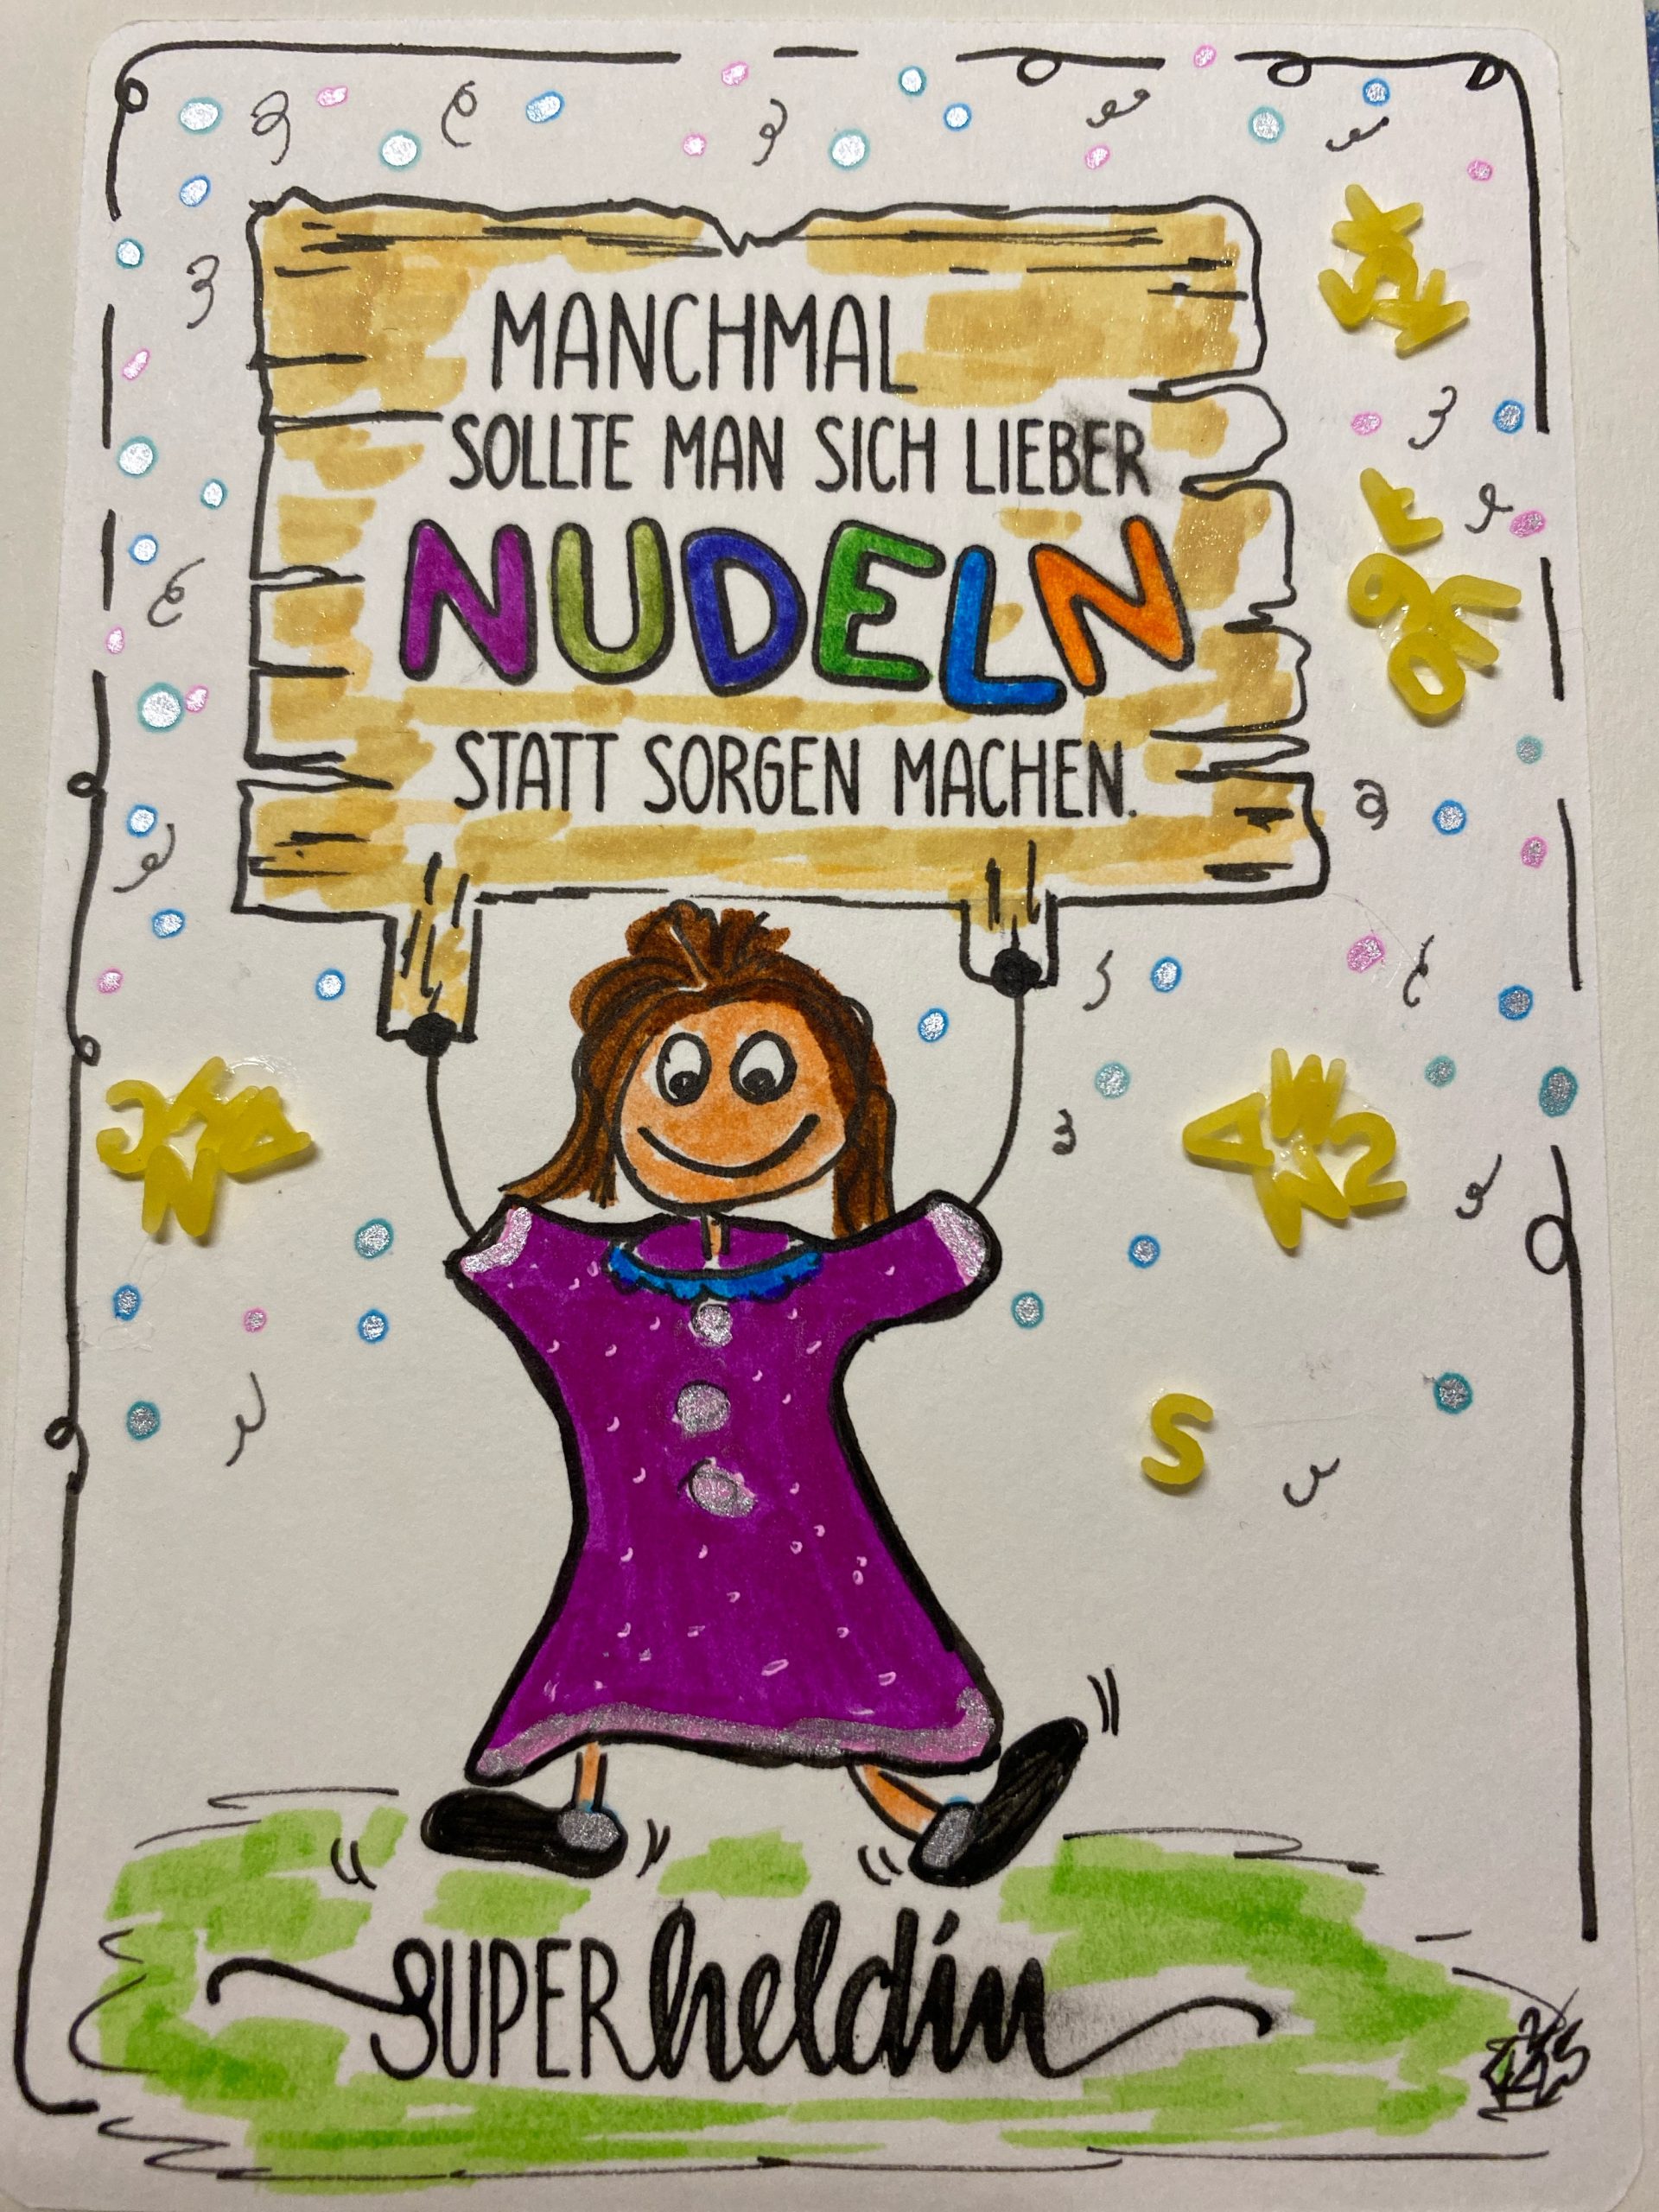 MANCHMAL
SOLLTE MAN SICH LIEBER
NUDELN
STATT SORGEN MACHEN.
S
SUPERheldin